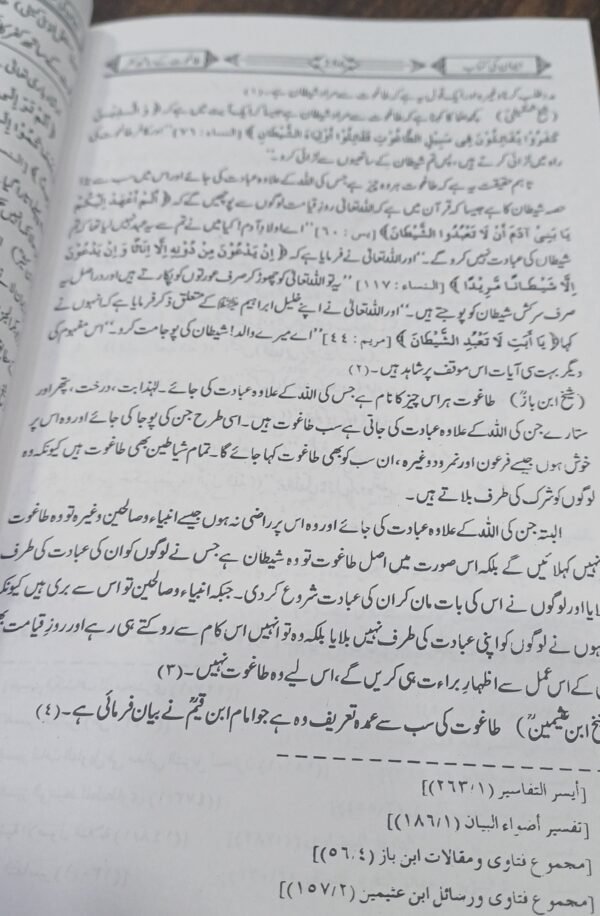 ایمان کی کتاب
طلب کرنا وغیرہ اور ایک قول یہ ہے کہ طاغوت سے مراد شیطان ہے۔(۱)
(شیخ شنقیطیؒ) کہا ہے کہ طاغوت سے مراد شیطان ہے جیسا کہ ایک آیت میں ہے کہ ﴿ وَ الَّذِيْنَ
كَفَرُوْا يُقَاتِلُوْنَ فِي سَبِيْلِ الطَّاغُوْتِ فَقَاتِلُوْا اَوْلِيَاءَ الشَّيْطَانِ ﴾ [النساء : ٧٦] ’’اور کافر طاغوت کی
راہ میں لڑائی کرتے ہیں، پس تم شیطان کے ساتھیوں سے لڑائی کرو۔‘‘
تاہم حقیقت یہ ہے کہ طاغوت ہر وہ چیز ہے جس کی اللہ کے علاوہ عبادت کی جائے اور اس میں سب سے بڑا
حصہ شیطان کا ہے جیسا کہ قرآن میں ہے کہ اللہ تعالیٰ روزِ قیامت لوگوں سے پوچھیں گے کہ ﴿ اَلَمْ اَعْهَدْ اِلَيْكُمْ
يَا بَنِيْ آدَمَ اَنْ لَا تَعْبُدُوا الشَّيْطَانَ ﴾ [يس : ٦٠] ’’اے اولادِ آدم! کیا میں نے تم سے یہ عہد نہیں لیا تھا کہ تم
شیطان کی عبادت نہیں کرو گے۔‘‘ اور اللہ تعالیٰ نے فرمایا ہے کہ ﴿ اِنْ يَدْعُوْنَ مِنْ دُوْنِهِ اِلَّا اِنَاثًا وَ اِنْ يَدْعُوْنَ
اِلَّا شَيْطَانًا مَّرِيْدًا ﴾ [النساء : ١١٧] ’’یہ تو اللہ تعالیٰ کو چھوڑ کر صرف عورتوں کو پکارتے ہیں اور دراصل یہ
صرف سرکش شیطان کو پوجتے ہیں۔‘‘ اور اللہ تعالیٰ نے اپنے خلیل ابراہیم ﷺ کے متعلق ذکر فرمایا ہے کہ انہوں نے
کہا ﴿ يَا أَبَتِ لَا تَعْبُدِ الشَّيْطَانَ ﴾ [مريم : ٤٤] ’’اے میرے والد! شیطان کی پوجا مت کرو۔‘‘ اس مفہوم کی
دیگر بہت سی آیات اس موقف پر شاہد ہیں۔(۲)
(شیخ ابن بازؒ) طاغوت ہر اس چیز کا نام ہے جس کی اللہ کے علاوہ عبادت کی جائے۔ لہٰذا بت، درخت، پتھر اور
ستارے جن کی اللہ کے علاوہ عبادت کی جاتی ہے سب طاغوت ہیں۔ اسی طرح جن کی پوجا کی جائے اور وہ اس پر
خوش ہوں جیسے فرعون اور نمرود وغیرہ، ان سب کو بھی طاغوت کہا جائے گا۔ تمام شیاطین بھی طاغوت ہیں کیونکہ وہ
لوگوں کو شرک کی طرف بلاتے ہیں۔
البتہ جن کی اللہ کے علاوہ عبادت کی جائے اور وہ اس پر راضی نہ ہوں جیسے انبیاء و صالحین وغیرہ تو وہ طاغوت
نہیں کہلائیں گے بلکہ اس صورت میں اصل طاغوت تو وہ شیطان ہے جس نے لوگوں کو ان کی عبادت کی طرف
لایا اور لوگوں نے اس کی بات مان کر ان کی عبادت شروع کر دی۔ جبکہ انبیاء و صالحین تو اس سے بری ہیں کیونکہ
ہوں نے لوگوں کو اپنی عبادت کی طرف نہیں بلایا بلکہ وہ تو انہیں اس کام سے روکتے ہی رہے اور روزِ قیامت بھی
کے اس عمل سے اظہارِ براءت ہی کریں گے، اس لیے وہ طاغوت نہیں۔(۳)
شیخ ابن عثیمینؒ) طاغوت کی سب سے عمدہ تعریف وہ ہے جو امام ابن قیمؒ نے بیان فرمائی ہے۔(۴)
[أيسر التفاسير (۲۶۳/۱)]
[تفسير أضواء البيان (۱۸۶/۱)]
[مجموع فتاوى ومقالات ابن باز (٥٦/٤)]
[مجموع فتاوى ورسائل ابن عثيمين (۱۵۷/۲)]